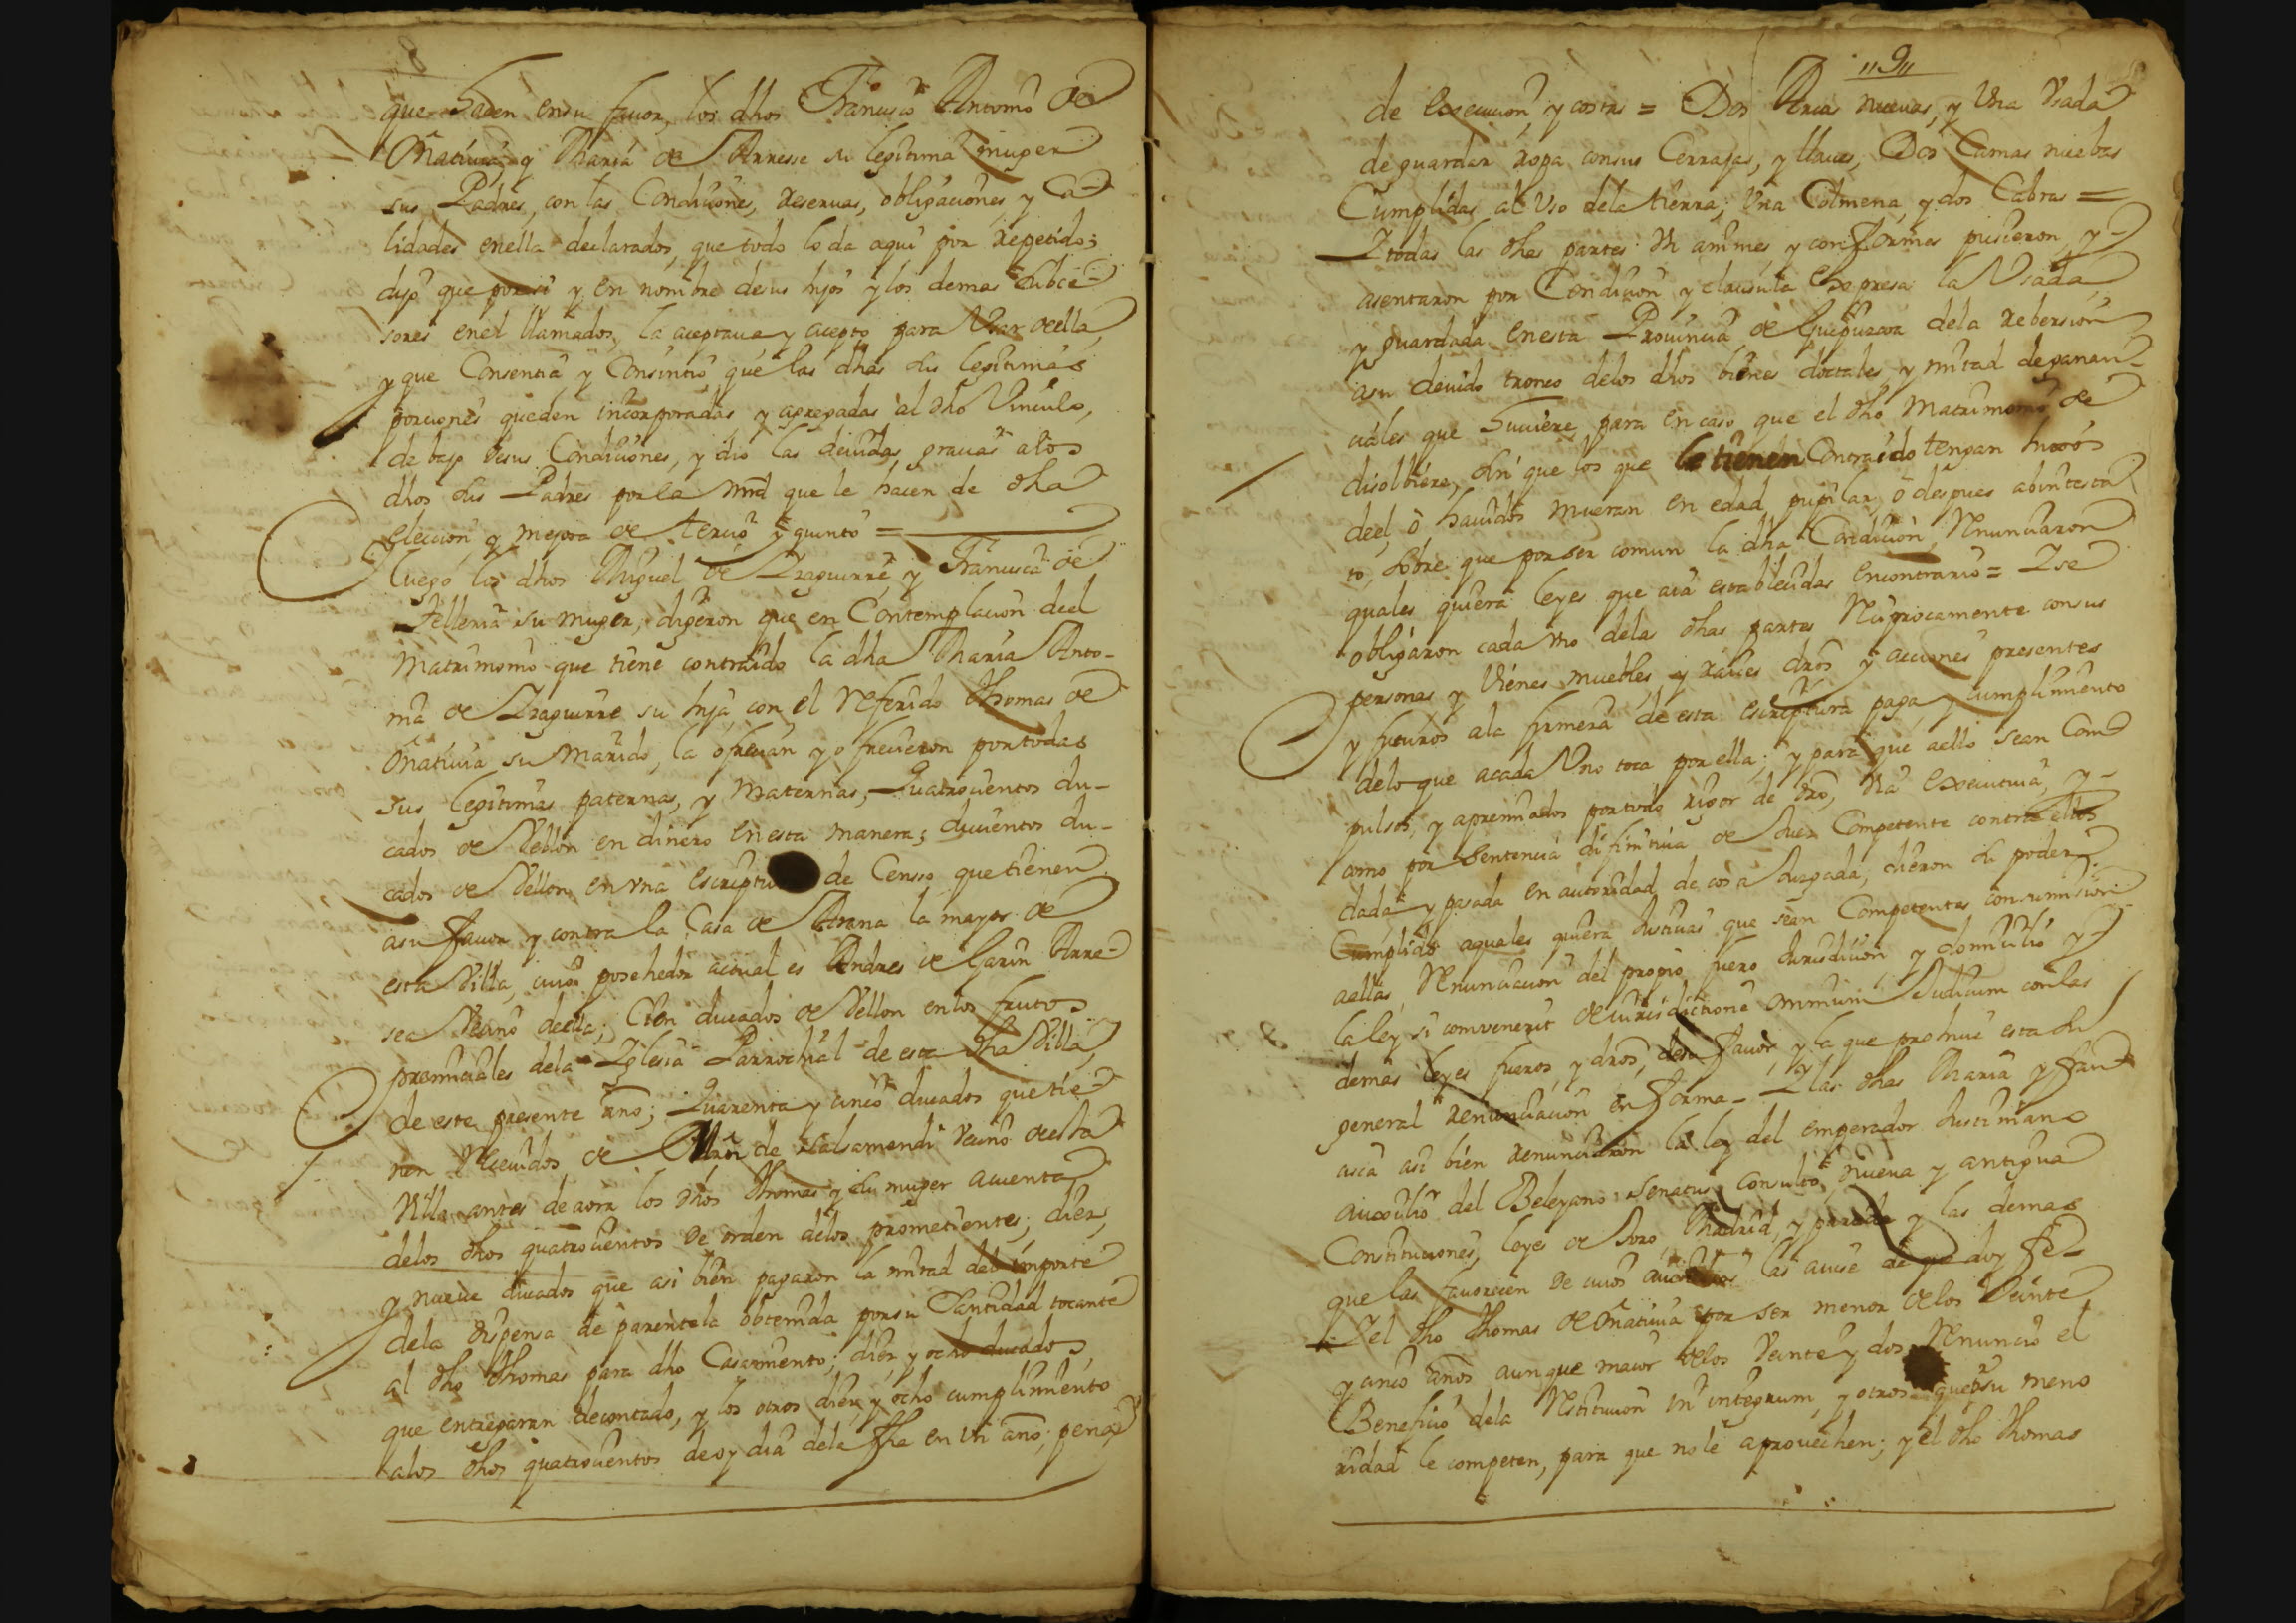 que hacen en su favor, los dhos Francisco Antonio de
Oñativia, y Maria de Arresse su legitima muger
sus Padres, con las Condiciones, reseruas, obligaciones y Ca-
lidades en ella declarados, que todo lo da aqui por repetido;
dijo que por si y en nombre de sus hijos y los demas Subce-
sores en el llamados, la aceptaua y acepto para Vsar de ella,
y que Consentia y Consintio que las dhas sus legitimas
porciones queden incorporadas y agregadas al dho Vinculo,
de bajo de sus Condiciones, y dio las deuidas gracias a los
dhos sus Padres por la mrd que le hacen de dha
eleccion, y mejora de tercio y quinto =
Luego los dhos Miguel de Yraguirre, y Francisca de
Telleria su muger, digeron que en Contemplacion del
Matrimonio que tiene contraido la dha Maria Anto-
nia de Yraguirre su hija con el referido Thomas de
Oñativia su Marido, la ofrecian y ofrecieron por todas
sus legitimas paternas, y Maternas, Quatrocientos du-
cados de Vellon en dinero en esta manera; ducientos du-
cados de Vellon en vna escriptu de Censso que tienen
a su fauor y contra la Casa de Arana la mayor de
esta Villa, cuio posehedor actual es Andres de Garin Arre-
sea Vecino de ella; Cien ducados de Vellon en los frutos
premiciales dela Yglesia Parrochial de esta dha Villa,
de este presente año; Quarenta y cinco ducados que tie-
nen Reciuidos de de Salsamendi Vecino de esta
Villa antes de aora los dhos Thomas y su muger a cuenta
delos dhos quatrocientos de orden delos prometientes; diez
y nueue ducados que asi bien pagaron la mitad del importe
dela dispensa de parentela obtenida por su Santidad tocante
al dho Thomas para dho Casamiento; diez y ocho ducados
que entregaran decontado, y los otros diez y ocho cumplimiento
alos dhos quatrocientos de oy dia dela fha en vn año, pena
"9"
de execucion, y costas = Dos Arcas nuevas, y Vna Vsada
de guardar ropa con sus Cerrajas, y llaues; Dos Camas nuebas
Cumplidas al Vso dela tierra; Vna Colmena, y dos Cabras =
Y todas las dhas partes Vn animes, y conformes pusieron, y
asentaron por Condicion y clausula expresa la Vsada
y guardada en esta Prouincia de Guipuzcoa dela reberssion
a su deuido tronco delos dhos bienes dottales, y mitad de ganan-
ciales que huuiere para en caso que el dho Matrimonio se
disolbiere, sin que los que le tienen Contraido tengan hixos
de el, o hauidos mueran en edad pupilar, o despues abintesta-
to, sobre que por ser comun la dha Condicion, Renunciaron
quales quiera leyes que aia establecidas en contrario = Y se
obligaron cada vno delas dhas partes Reciprocamente con sus
personas y Vienes muebles y raices dros y acciones presentes
y futuros ala firmeza de esta escriptura paga y cumplimiento
delo que acada Vno toca por ella; y para que a ello sean Com-
pulsos, y apremiados por todo rigor de dro, Via executiua, y
como por Sentencia difinitiua de Juez Competente contra ellos
dada y pasada en autoridad de cosa Juzgada, dieron su poder
Cumplido a quales quiera Justicias que sean Competentes con sumission
a ellas, Renunciacion del propio fuero Jurisdicion y domicilio y
la ley si convenerit de iurisdictione omnium Judicum con las
demas leyes fueros, y dros, de su fauor, y la que prohiue esta su
general renunciacion en forma - Y las dhas Maria y Fran-
cisca asi bien renunciaron la ley del emperador Justiniano
auxilio del Beleyano Senatus Consulto, nueua y antigua
Constituciones, leyes de Toro, Madrid, y partida y las demas
que las fauorecen de cuios las auise de que doy fe -
Y el dho Thomas de Oñativia por ser menor de los Veinte
y cinco años aunque maior de los Veinte y dos, Renuncio el
Beneficio dela Restitucion in integrum, y otros que por su meno
ridad le competen, para que no le aprouechen; y el dho Thomas